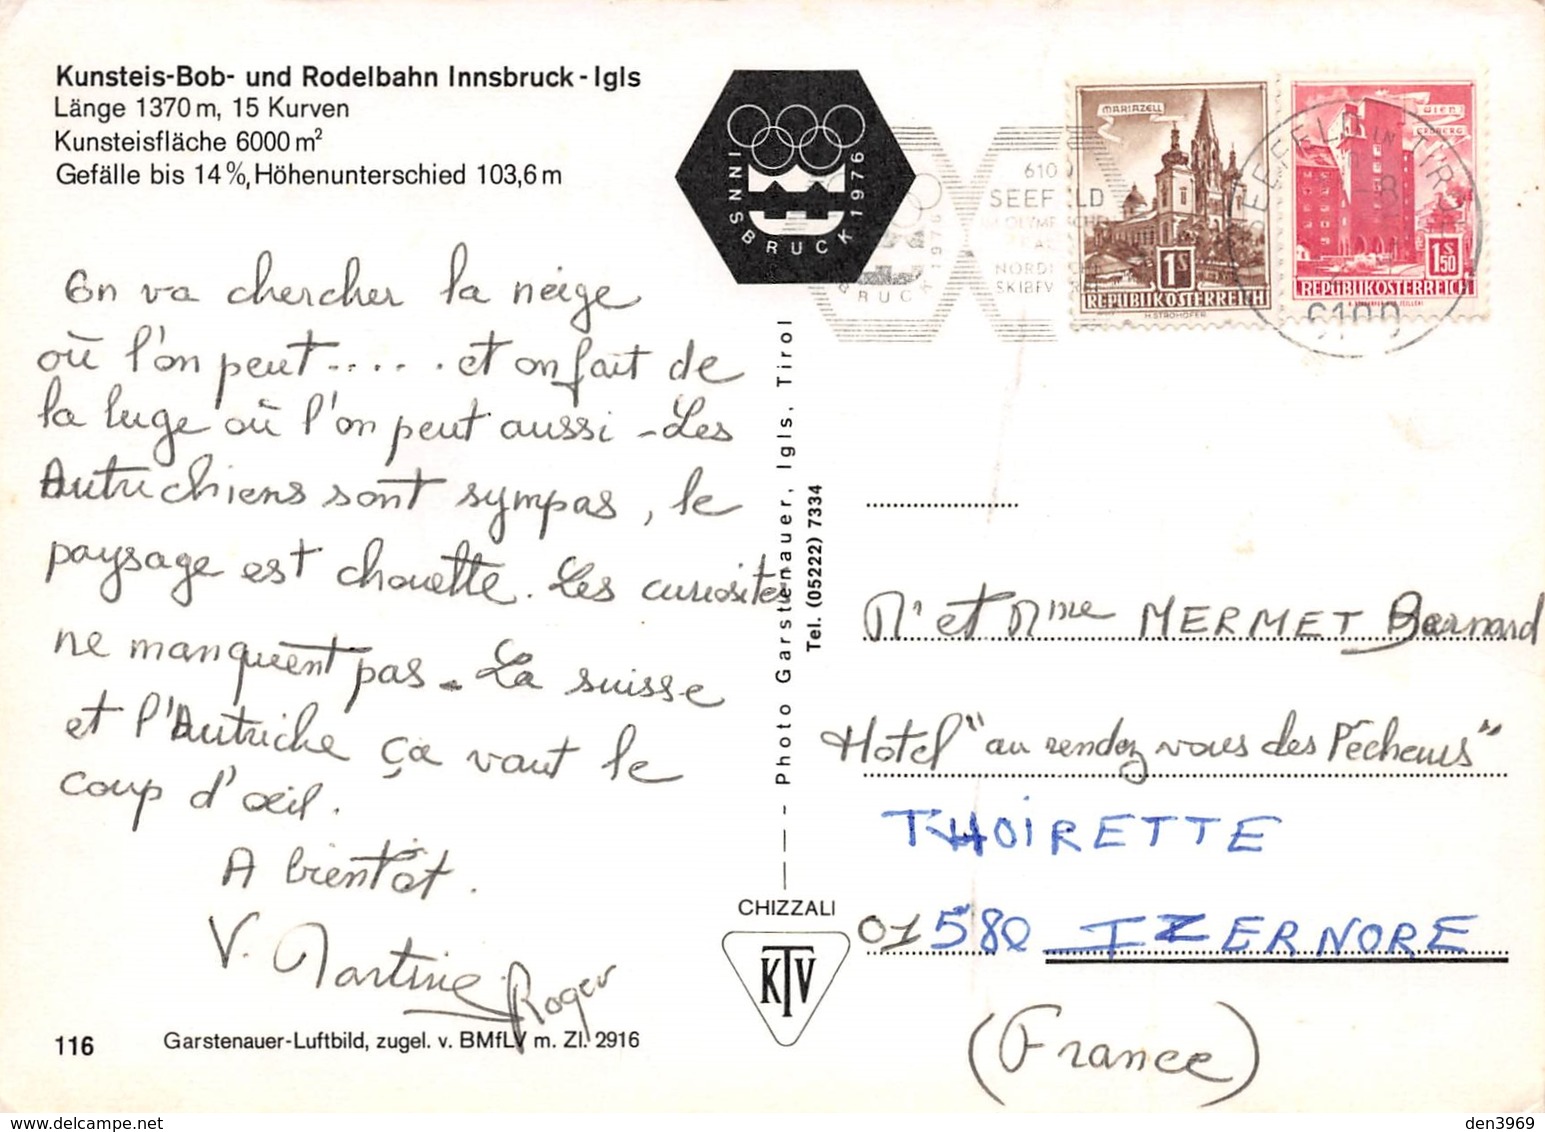 Kunsteis-Bob- und Rodelbahn Innsbruck - Igls
Länge 1370 m, 15 Kurven
Kunsteisfläche 6000 m²
Gefälle bis 14 %, Höhenunterschied 103,6 m
INNSBRUCK 1976
On va chercher la neige
où l'on peut..... et on fait de
la luge où l'on peut aussi - Les
Autrichiens sont sympas, le
paysage est chouette. Les curiosites
ne manquent pas - La suisse
et l'Autriche ça vaut le
coup d'œil.
A bientôt.
V. Martine Roger
116
Garstenauer-Luftbild, zugel. v. BMfLV m. Zl. 2916
Photo Garstenauer, Igls, Tirol
Tel. (05222) 7334
CHIZZALI
KTV
1976
RUCK
SEEFELD
NORDISCHE
MARIAZELL
1S
REPUBLIK ÖSTERREICH
H. STROHOFER
WIEN
ERDBERG
1S50
REPUBLIK ÖSTERREICH
SEEFELD IN TIROL
6100
Mr et Mme MERMET Bernard
Hotel "au rendez vous des Pêcheurs"
THOIRETTE
01580 IZERNORE
(France)
den3969